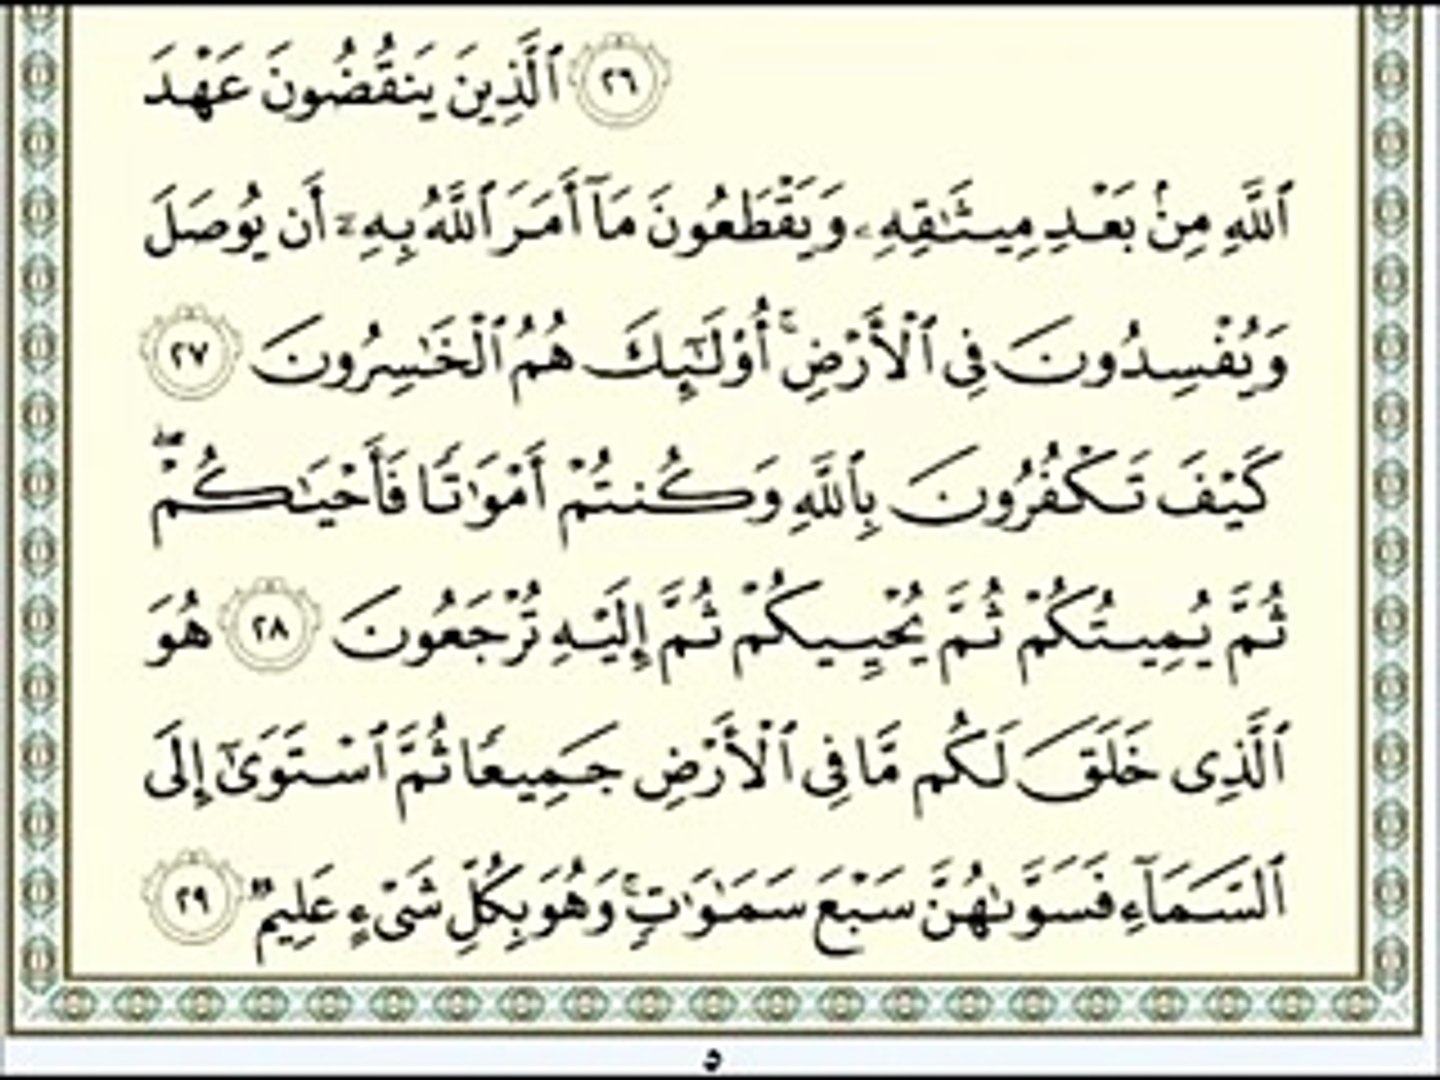 ۝٢٦ ٱلَّذِينَ يَنقُضُونَ عَهْدَ
ٱللَّهِ مِنۢ بَعْدِ مِيثَـٰقِهِۦ وَيَقْطَعُونَ مَآ أَمَرَ ٱللَّهُ بِهِۦٓ أَن يُوصَلَ
وَيُفْسِدُونَ فِى ٱلْأَرْضِ ۚ أُو۟لَـٰٓئِكَ هُمُ ٱلْخَـٰسِرُونَ ۝٢٧
كَيْفَ تَكْفُرُونَ بِٱللَّهِ وَكُنتُمْ أَمْوَٰتًا فَأَحْيَـٰكُمْ ۖ
ثُمَّ يُمِيتُكُمْ ثُمَّ يُحْيِيكُمْ ثُمَّ إِلَيْهِ تُرْجَعُونَ ۝٢٨ هُوَ
ٱلَّذِى خَلَقَ لَكُم مَّا فِى ٱلْأَرْضِ جَمِيعًا ثُمَّ ٱسْتَوَىٰٓ إِلَى
ٱلسَّمَآءِ فَسَوَّىٰهُنَّ سَبْعَ سَمَـٰوَٰتٍ ۚ وَهُوَ بِكُلِّ شَىْءٍ عَلِيمٌ ۝٢٩
٥